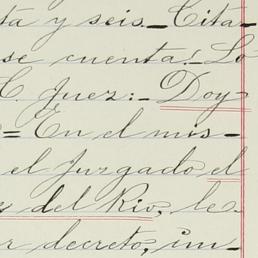 ta y seis.=Cita-
se cuenta. Lo
C. Juez:- Doy
= En el mis-
el Juzgado el
s del Rio, le-
r decreto, im-